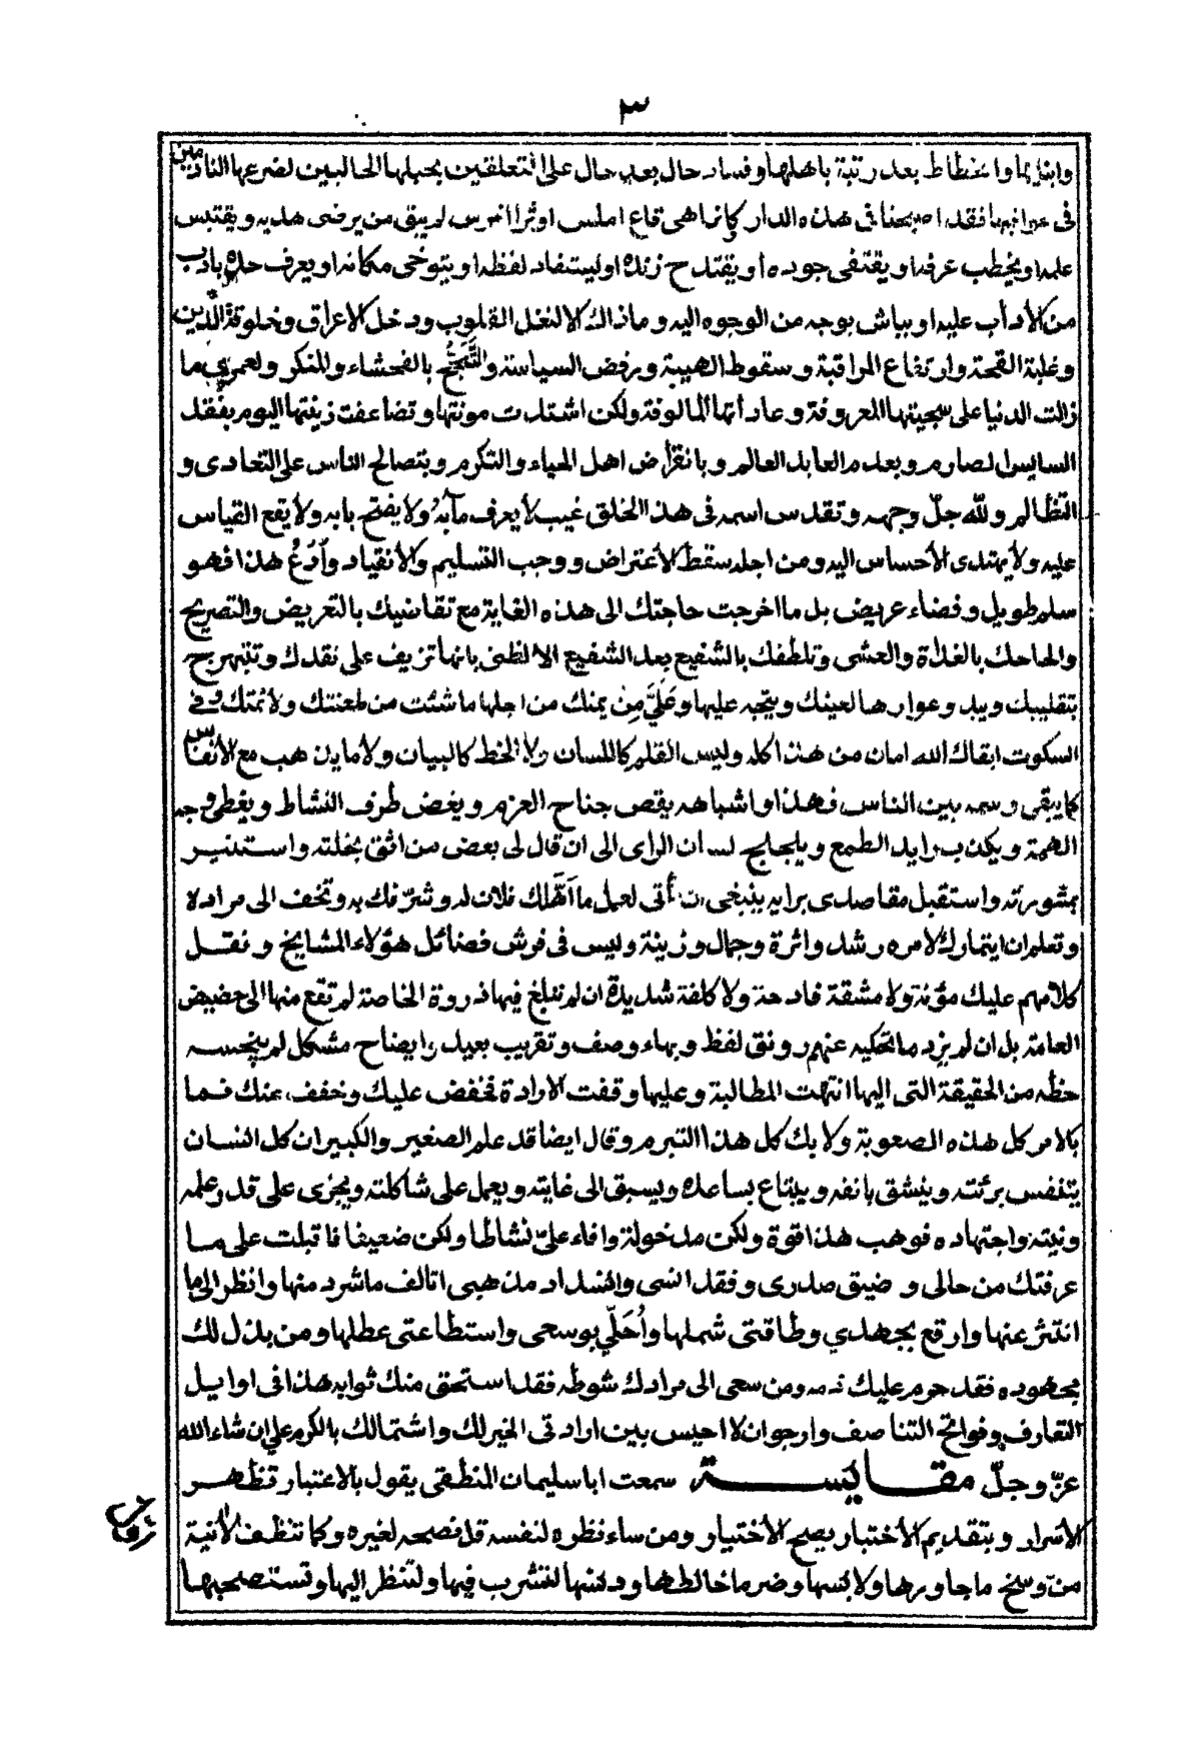 ٣
وانحطاط بعد رتبة باهلها وفساد حال بعد حال على المتعلقين بحبلها الحالبين لضرعها النادمين
فى فقد اصبحنا فى هذه الدار كانما هى قاع املس او لم يبق من يرضى هديه ويقتبس
علمه او يخطب عرفه او يقتفى جوده او يقتدح زنده او ليستفاد لفظه او يتوخى مكانه او يعرف حده بادب
من الأدأب عليه او يباش بوجه من الوجوه اليه وما ذاك الا لنغل القلوب ودخل الاعراق وخلوقة الدين
وغلبة القحة وارتفاع المراقبة وسقوط الهيبة ورفض السياسة والتبجح بالفحشاء والمنكر ولعمرى ما
زالت الدنيا على سجيتها المعروفة وعاداتها المالوفة ولكن اشتدت مونتها وتضاعفت زينتها اليوم بفقد
السايس الصارم وبعدم العابد العالم وبانقراض اهل الحياء والتكرم وبتصالح الناس على التعادى و
التظالم ولله جلّ وجهه وتقدس اسمه فى هذا الخلق غيب لا يعرف مآبه ولا يفتح بابه ولا يقع القياس
عليه ولا يهتدى الأحساس اليه ومن اجله سقط الاعتراض ووجب التسليم والأنقياد وأدَعُ هذا فهو
سلم طويل وفضاء عريض بل ما اخرجت حاجتك الى هذه الغاية مع تقاضيك بالتعريض والتصريح
والحاحك بالغداة والعشى وتلطفك بالشفيع بعد الشفيع الا لظنى بانها تزيف على نقدك وتتبهرج
بتقليبك ويبد وعوارها لعينك ويتجه عليها وعَلَىَّ مِن يمنك من اجلها ما شئت من طعنتك ولائمتك وفى
السكوت ابقاك الله امان من هذا كله وليس القلم كاللسان ولا الخط كالبيان ولا ما يذهب مع الأنفاس
كما يبقى وسمه بين الناس فهذا واشباهه يقص جناح العزم ويغض طرف النشاط ويغطى وجه
الهمة ويكذب رايد الطمع ويلجلج لسان الراى الى ان قال لى بعض من اثق بخلته واستنير
بمشورته واستقبل مقاصدى برايه ينبغى ان تأتى لعمل ما اَهَّلك فلان له وشرّفك به وتخف الى مراده
وتعلم ان ايتمارك لامره رشد واثرة وجمال وزينة وليس فى فرش فضائل هؤلاء المشايخ ونقل
كلامهم عليك مؤنة ولا مشقة فادحة ولا كلفة شديدة ان لم تبلغ فيها ذروة الخاصة لم تقع منها الى حضيض
العامة بل ان لم يزد ما تحكيه عنهم رونق لفظ وبهاء وصف وتقريب بعيد وايضاح مشكل لم يبخسه
حظه من الحقيقة التى اليها انتهت المطالبة وعليها وقفت الارادة فخفض عليك وخفف عنك فما
بالامر كل هذه الصعوبة ولا بك كل هذا التبرم وقال ايضا قد علم الصغير والكبير ان كل انسان
يتنفس برئته وينشق بانفه ويبتاع بساعده ويسبق الى غايته ويعمل على شاكلته ويجزى على قدر علمه
ونيته واجتهاده فوهب هذا قوة ولكن مدخولة وافاء علىّ نشاطا ولكن ضعيفا فاقبلت على ما
عرفتك من حالى وضيق صدرى وفقد انسى وانسداد مذهبى اتالف ما شرد منها وانظر الى ما
انتثر عنها وارقع بجهدي وطاقتى شملها واُحَلّي بوسعى واستطاعتى عطلها ومن بذل لك
مجهوده فقد حرم عليك ذمه ومن سعى الى مرادك شوطه فقد استحق منك ثوابه هذا فى اوايل
التعارف وفواتح التناصف وارجو ان لا احيس بين ارادتى الخير لك واشتمالك بالكرم علىّ ان شاء الله
عزّ وجلّ مقايسة سمعت ابا سليمان المنطقى يقول بالاعتبار تظهر
الأسرار وبتقديم الأختبار يصح الأختيار ومن ساء نظره لنفسه قل نصحه لغيره وكما تنظف الأنية
من وسخ ما جاورها ولابسها وضر ما خالطها ودنسها لتشرب فيها ولتنظر اليها وتستصحبها